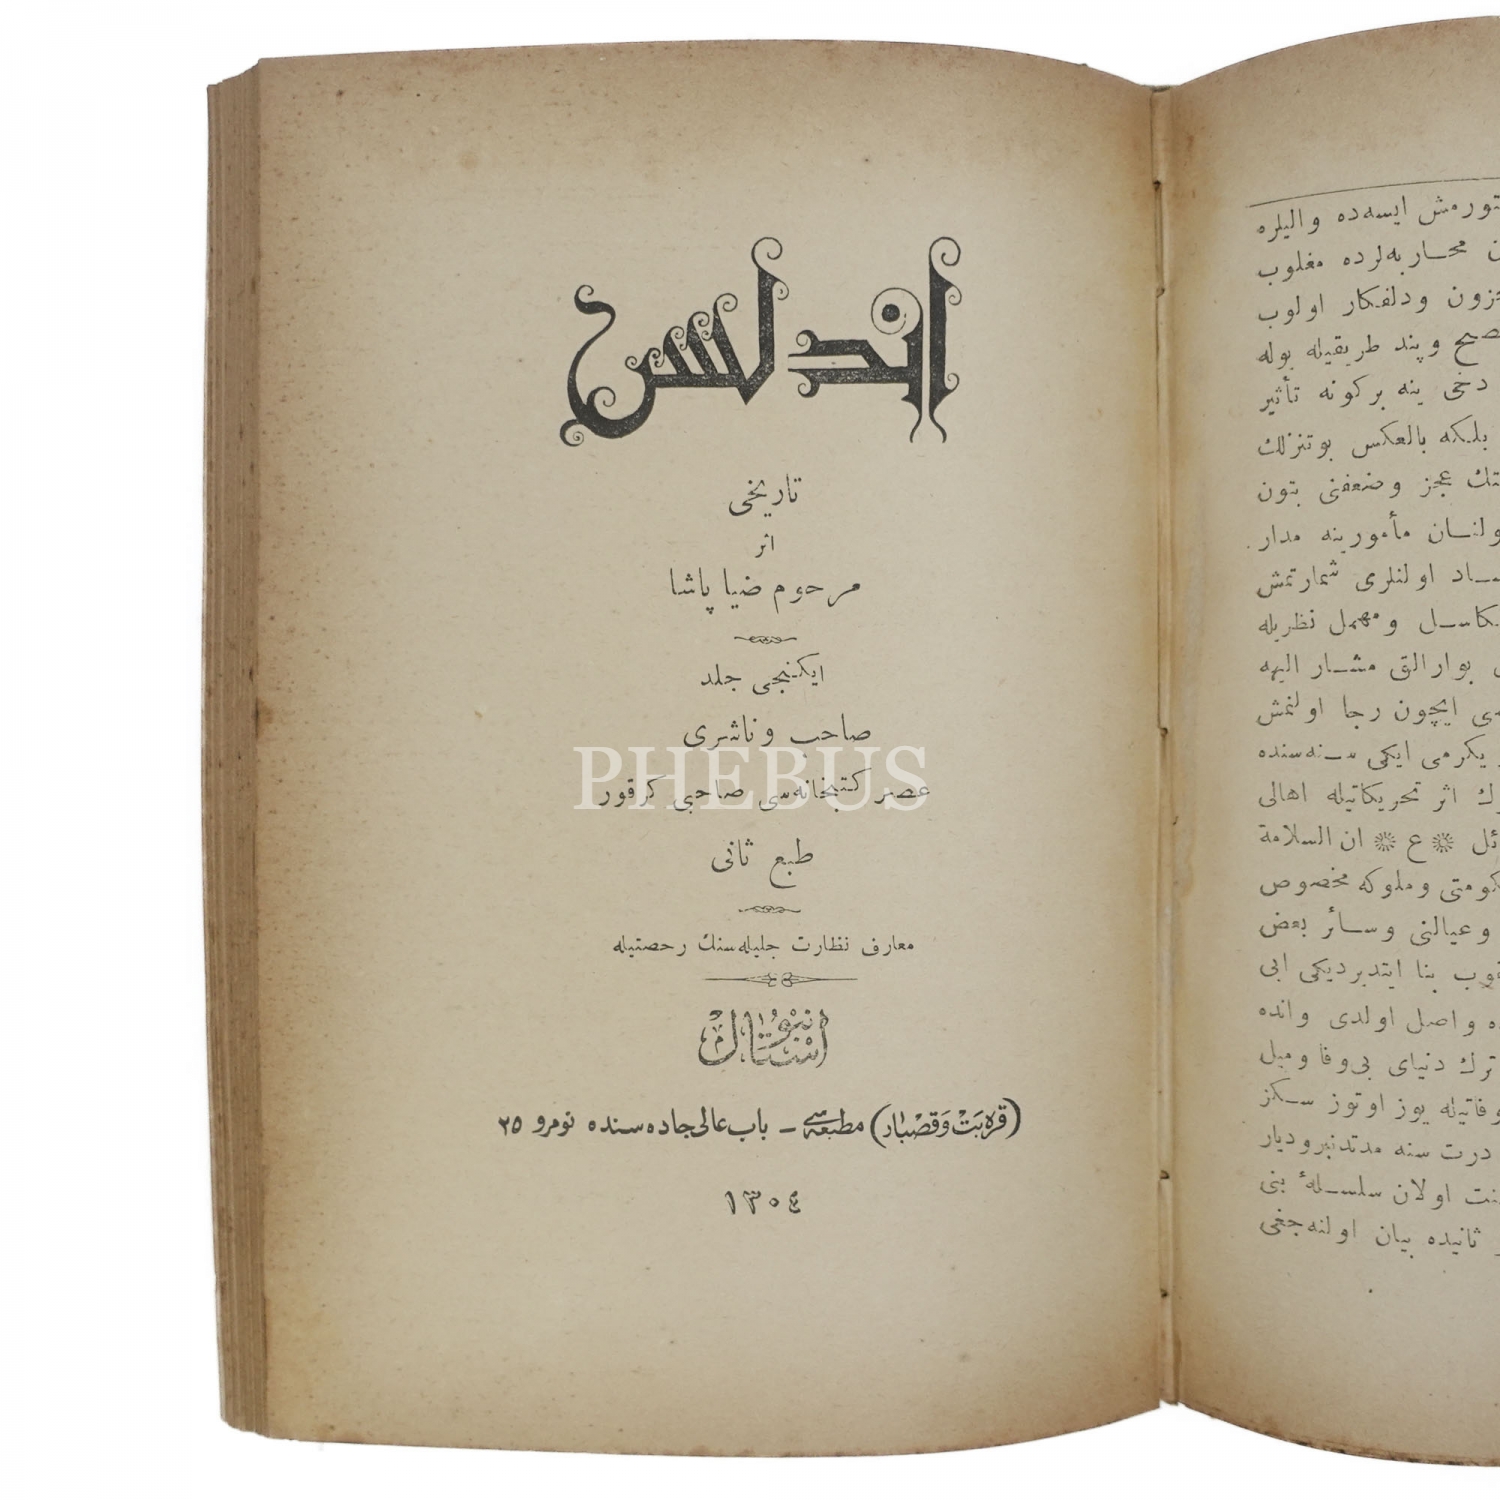 اندلس
تاريخى
اثر
مرحوم ضيا پاشا
ايكنجى جلد
صاحب و ناشرى
عصر كتبخانه‌سى صاحبى كرقور
طبع ثانى
معارف نظارت جليله‌سنك رخصتيله
استانبول
(قره بت و قصبار) مطبعه‌سى – باب عالى جاده‌سنده نومرو ٢٥
١٣٠٤
PHEBUS
تورمش ايسه‌ده واليلره
محاربه‌لرده مغلوب
ودلفكار اولوب
وپند طريقيله بوله
دخى ينه بركونه تأثير
بلكه بالعكس بوتنزلك
عجز وضعفنى بتون
ولنسان مأمورينه مدار
اولنلرى شمارتمش
ومهمل نظريله
بوارالق مشار اليه
ايچون رجا اولنمش
يكرمى ايكى سنه‌سنده
اثر تحريكاتيله اهالى
ع ان السلامة
وملوكه مخصوص
وعيالنى وسائر بعض
بنا ايتديرديكى ابى
واصل اولدى وانده
ترك دنياى بى‌وفا وميل
وفاتيله يوز اوتوز سكز
درت سنه مدتدنبرو ديار
اولان سلسلهٔ بنى
ثانيده بيان اولنه‌جغى